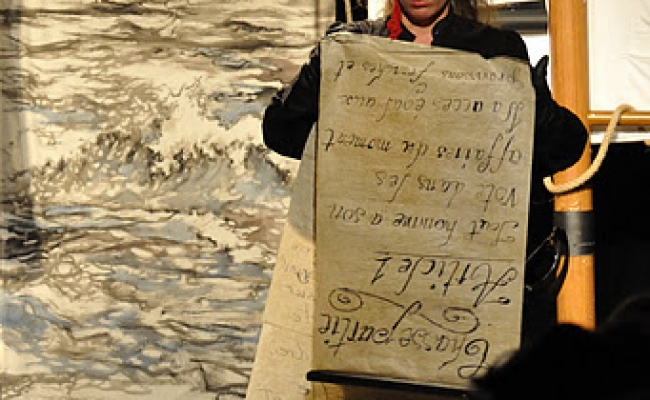 Chasse partie
Article 1
Tout homme a son
vote dans les
affaires du moment
Il a accès égal aux
provisions fraîches et